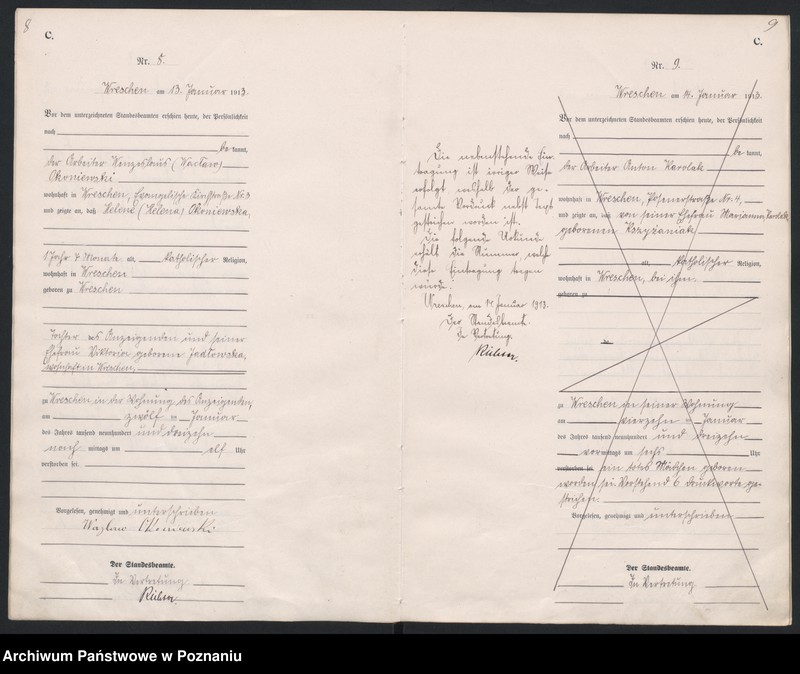 8
C.
Nr. 8.
Wreschen am 13. Januar 1913.
Vor dem unterzeichneten Standesbeamten erschien heute, der Persönlichkeit
nach
be kannt,
der Arbeiter Wenzeslaus (Wacław)
Okoniewski
wohnhaft in Wreschen, Evangelische Kirchstraße Nr. 3
und zeigte an, daß Helene (Helena) Okoniewska,
1 Jahr 4 Monate alt, katholischer Religion,
wohnhaft in Wreschen
geboren zu Wreschen
Tochter des Anzeigenden und seiner
Ehefrau Viktoria geborene
wohnhaft in Wreschen,
zu Wreschen in der Wohnung des Anzeigenden,
am zwölf ten Januar
des Jahres tausend neunhundert und dreizehn
nach mittags um elf Uhr
verstorben sei.
Vorgelesen, genehmigt und unterschrieben
Wacław Okoniewski
Der Standesbeamte.
In Vertretung
9
C.
Nr. 9.
Wreschen am 14. Januar 1913.
Vor dem unterzeichneten Standesbeamten erschien heute, der Persönlichkeit
nach
be kannt,
der Arbeiter Anton Karolak
wohnhaft in Wreschen, Posenerstraße Nr. 4,
und zeigte an, daß von seiner Ehefrau Marianna Karolak
geborenen Krzyżaniak
alt, katholischer Religion,
wohnhaft in Wreschen, bei ihm
geboren zu
zu Wreschen in seiner Wohnung
am vierzehn ten Januar
des Jahres tausend neunhundert und dreizehn
vor mittags um sechs Uhr
verstorben sei ein totes Mädchen geboren
worden sei. Vorstehend 6 Druckworte ge-
strichen.
Vorgelesen, genehmigt und unterschrieben
Der Standesbeamte.
In Vertretung
Die nebenstehende Ein-
tragung ist irriger Weise
erfolgt weshalb der ge-
samte Vordruck nebst Text
gestrichen worden ist.
Die folgende Urkunde
erhält die Nummer, welche
diese Eintragung tragen
würde.
Wreschen, am 14. Januar 1913.
Der Standesbeamte
In Vertretung.
Archiwum Państwowe w Poznaniu